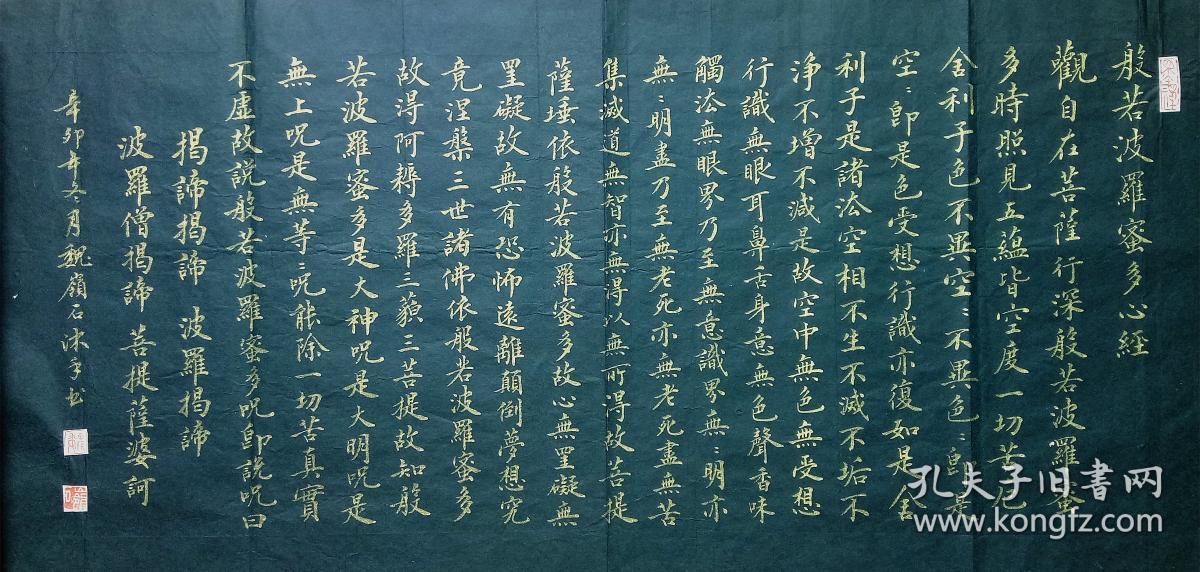 般若波羅蜜多心經
觀自在菩薩行深般若波羅蜜
多時照見五蘊皆空度一切苦厄
舍利子色不異空〻不異色〻即是
空〻即是色受想行識亦復如是舍
利子是諸法空相不生不滅不垢不
淨不增不減是故空中無色無受想
行識無眼耳鼻舌身意無色聲香味
觸法無眼界乃至無意識界無〻明亦
無〻明盡乃至無老死亦無老死盡無苦
集滅道無智亦無得以無所得故菩提
薩埵依般若波羅蜜多故心無罣礙無
罣礙故無有恐怖遠離顛倒夢想究
竟涅槃三世諸佛依般若波羅蜜多
故得阿耨多羅三藐三菩提故知般
若波羅蜜多是大神呪是大明呪是
無上呪是無等〻呪能除一切苦真實
不虛故說般若波羅蜜多呪即說呪曰
揭諦揭諦 波羅揭諦
波羅僧揭諦 菩提薩婆訶
辛卯年冬月魏嶺石沐手書
孔夫子旧书网
www.kongfz.com